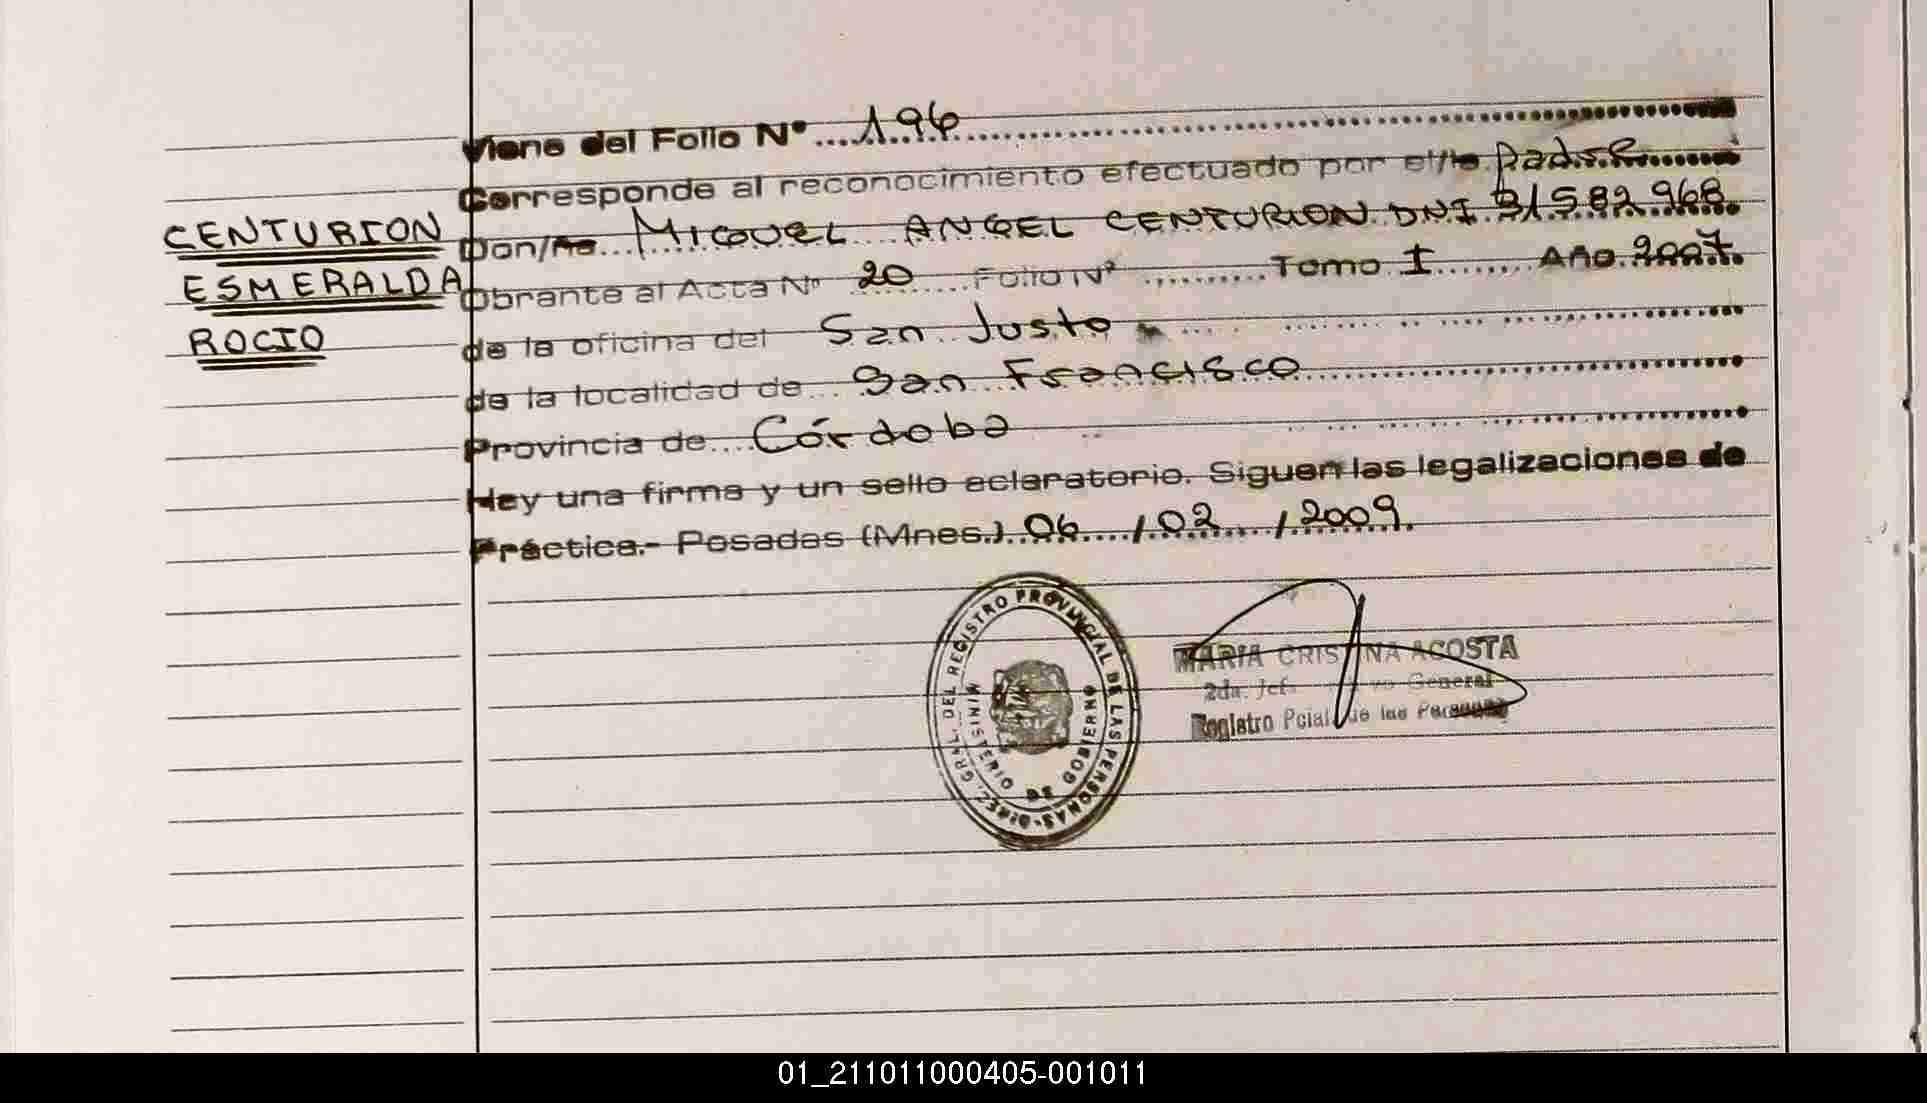 Viene del Folio Nº 196
Corresponde al reconocimiento efectuado por el/la Padre
CENTURION
Don/ña MIGUEL ANGEL CENTURION DNI 31582968
ESMERALDA
Obrante al Acta Nº 20 Folio Nº Tomo I Año 2007
ROCIO
de la oficina del San Justo
de la localidad de San Francisco
Provincia de Córdoba
Hay una firma y un sello aclaratorio. Siguen las legalizaciones de
Práctica.- Posadas (Mnes.) 06 / 02 / 2009.
DIREC. GRAL. DEL REGISTRO PROVINCIAL DE LAS PERSONAS
MINISTERIO DE GOBIERNO
MARIA CRISTINA ACOSTA
2da. Jef General
Registro Pcial de las Personas
01_211011000405-001011